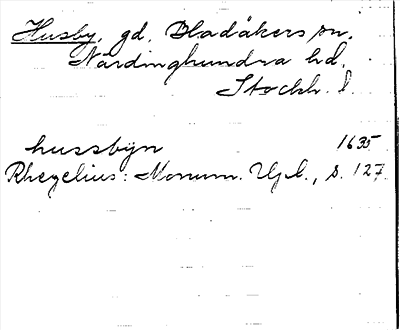 Husby, gd, Bladåkers sn,
Närdinghundra hd,
Stockh. l.
hussbÿn 1635
Rhezelius: Monum. Upl., s. 127.